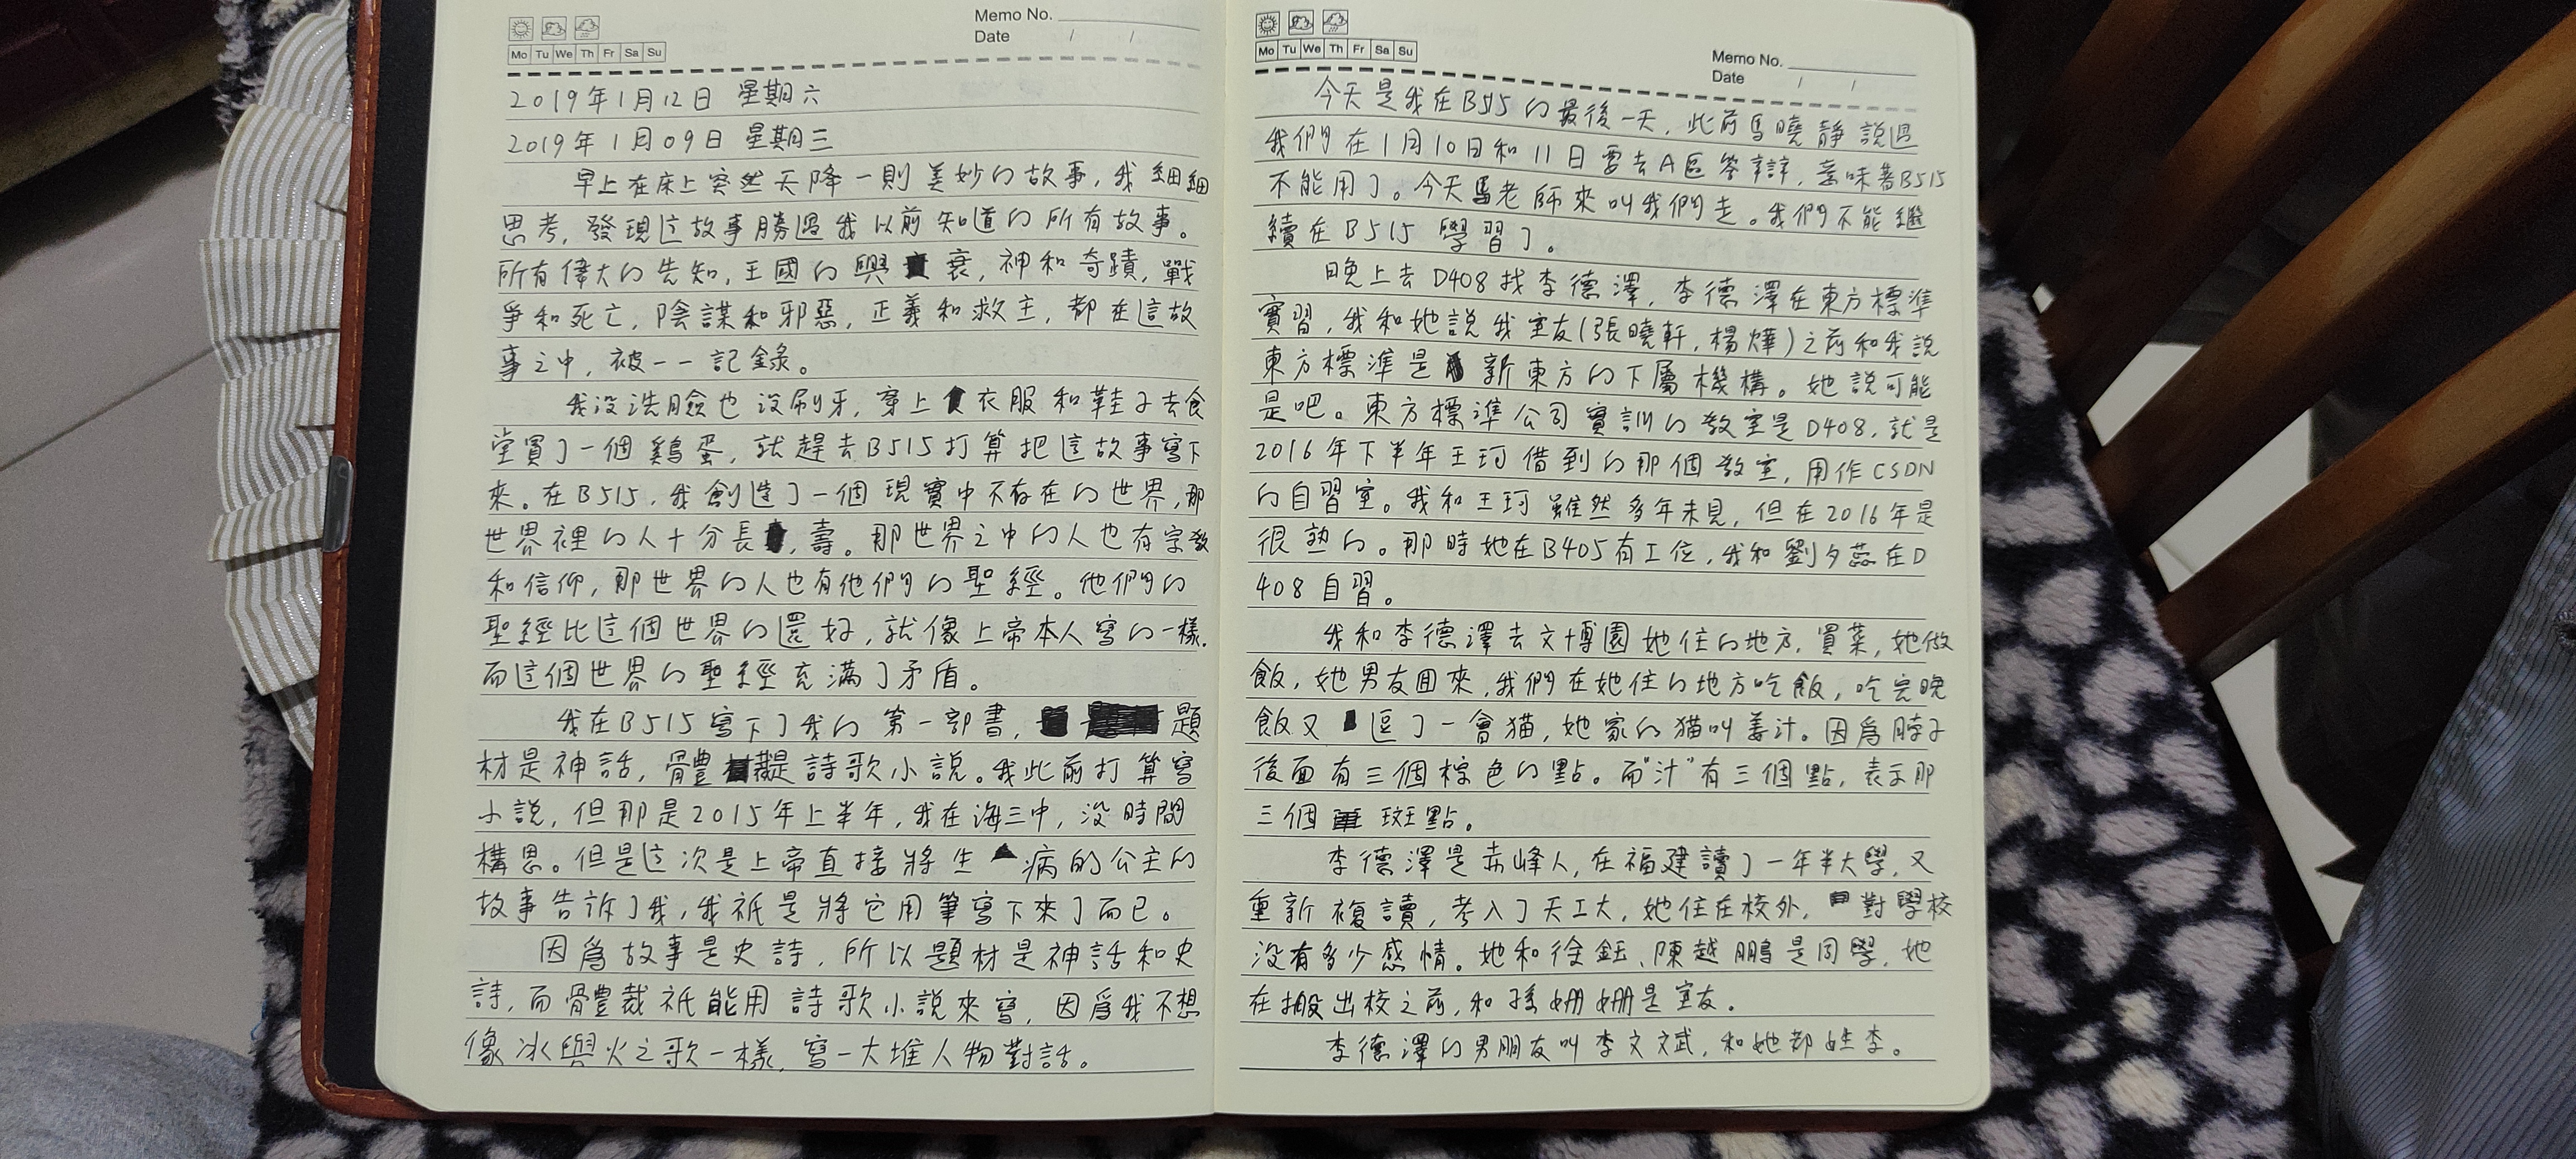 Memo No.
Date / /
Mo Tu We Th Fr Sa Su
2019年1月12日 星期六
2019年1月09日 星期三
早上在床上突然天降一則美妙的故事,我細細
思考,發現這故事勝過我以前知道的所有故事。
所有偉大的先知,王國的興衰,神和奇蹟,戰
爭和死亡,陰謀和邪惡,正義和救主,都在這故
事之中,被一一記錄。
我没洗臉也没刷牙,穿上衣服和鞋子去食
堂買了一個鷄蛋,就趕去B515打算把這故事寫下
來。在B515,我創造了一個現實中不存在的世界,那
世界裡的人十分長,壽。那世界之中的人也有宗教
和信仰,那世界的人也有他們的聖經。他們的
聖經比這個世界的還好,就像上帝本人寫的一樣.
而這個世界的聖經充滿了矛盾。
我在B515寫下了我的第一部書,題
材是神話,體裁是詩歌小説。我此前打算寫
小説,但那是2015年上半年,我在海三中,没時間
構思。但是這次是上帝直接將生病的公主的
故事告訴了我,我祇是將它用筆寫下來了而已。
因爲故事是史詩,所以題材是神話和史
詩,而體裁祇能用詩歌小説來寫,因爲我不想
像冰與火之歌一樣,寫一大堆人物對話。
Mo Tu We Th Fr Sa Su
Memo No.
Date / /
今天是我在B515的最後一天,此前馬曉靜説過
我們在1月10日和11日要去A區答辯,意味著B515
不能用了。今天馬老師來叫我們走。我們不能繼
續在B515學習了。
晚上去D408找李德澤,李德澤在東方標準
實習,我和她説我室友(張曉軒,楊燁)之前和我説
東方標準是新東方的下屬機構。她説可能
是吧。東方標準公司實訓的教室是D408,就是
2016年下半年王珂借到的那個教室,用作CSDN
的自習室。我和王珂雖然多年未見,但在2016年是
很熟的。那時她在B405有工位,我和劉夕蕊在D
408自習。
我和李德澤去文博園她住的地方,買菜,她做
飯,她男友回來,我們在她住的地方吃飯,吃完晚
飯又逗了一會猫,她家的猫叫姜汁。因爲脖子
後面有三個棕色的點。而"汁"有三個點,表示那
三個斑點。
李德澤是赤峰人,在福建讀了一年半大學,又
重新複讀,考入了天工大,她住在校外,對學校
没有多少感情。她和徐鈺、陳越鵬是同學,她
在搬出校之前,和孫姗姗是室友。
李德澤的男朋友叫李文斌,和她都姓李。